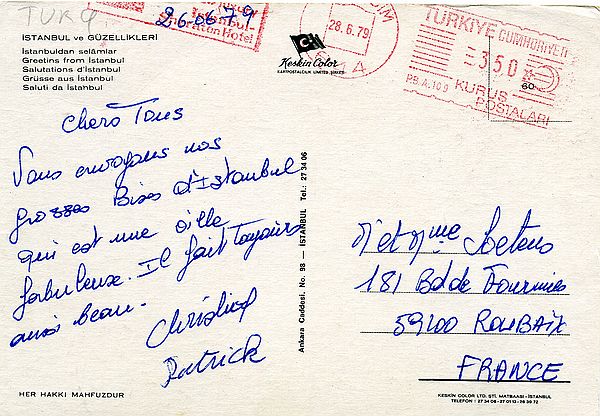 TURQ
26.06.79
Istanbul
Sheraton Hotel
28.6.79
TÜRKİYE CUMHURİYETİ
350
PB.A.109
KURUŞ
POSTALARI
60
İSTANBUL ve GÜZELLİKLERİ
İstanbuldan selâmlar
Greetins from İstanbul
Salutations d'İstanbul
Grüsse aus İstanbul
Saluti da İstanbul
Keskin Color
KARTPOSTALCILIK LIMITED ŞİRKETİ
Chers Tous
Vous envoyons nos
grosses Bises d'Istanbul
qui est une ville
fabuleuse. Il fait Toujours
aussi beau.
Patrick
Ankara Caddesi. No. 98 — İSTANBUL Tel.: 27 34 06
Mr et Mme
181 Bd de Fourmies
59100 ROUBAIX
FRANCE
HER HAKKI MAHFUZDUR
KESKİN COLOR LTD. ŞTİ. MATBAASI - İSTANBUL
TELEFON : 27 34 06 - 27 01 13 - 26 39 72